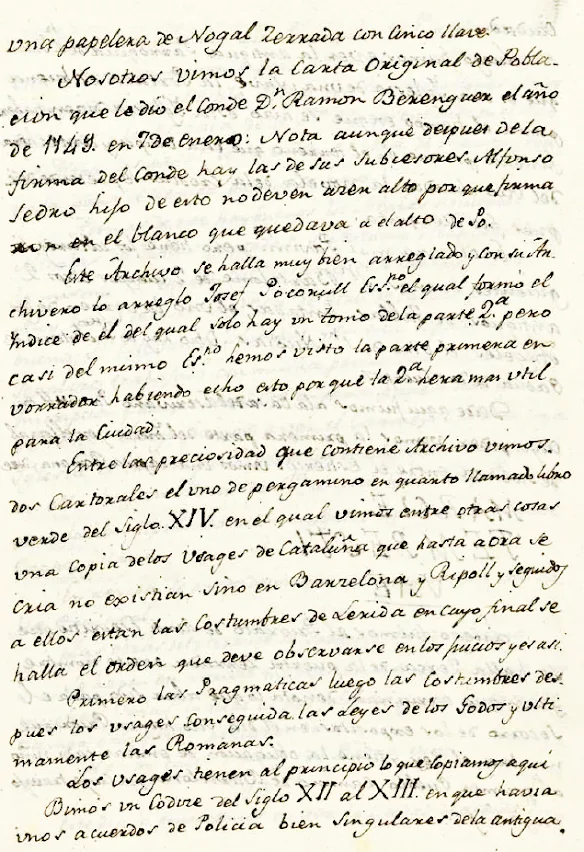 una papelera de Nogal Zerrada con Cinco llave.
Nosotros vimos la Carta Original de Pobla-
cion que le dio el Conde Dn. Ramon Berenguer el año
de 1149. en 7 de Enero: Nota aunque despues de la
firma del Conde hay las de sus subcesores Alfonso
Pedro hijo de esto no deven azen alto porque firma
ron en el blanco que quedava a el alto de So.
Este Archivo se halla muy bien arreglado y con su Ar-
chivero lo arreglo Josef Pocorull Essno. el qual formo el
Indice de el del qual solo hay un tomo de la parte 2.a pero
casi del mimo Esno hemos visto la parte primera en
vorrador habiendo echo esto porque la 2a hera mas util
para la Ciudad
Entre las preciosidad que contiene Archivo vimos.
dos Cartorales el uno de pergamino en quanto llamado libro
verde del Siglo. XIV. en el qual vimos entre otras cosas
una Copia de los Usages de Cataluña que hasta aora se
cria no existian sino en Barzelona y Ripoll y seguidos
a ellos estan las Costumbres de Lerida en cuyo final se
halla el orden que deve observarse en los Juicios y es asi.
Primero las Pragmaticas luego las Costumbres des-
pues los usages Conseguida las Leyes de los Godos y ulti-
mamente las Romanas.
Los usages tienen al principio lo que Copiamos aqui
Bimos un Codize del Siglo XII al XIII. en que havia
unos acuerdos de Policia bien singulares de la antigua.